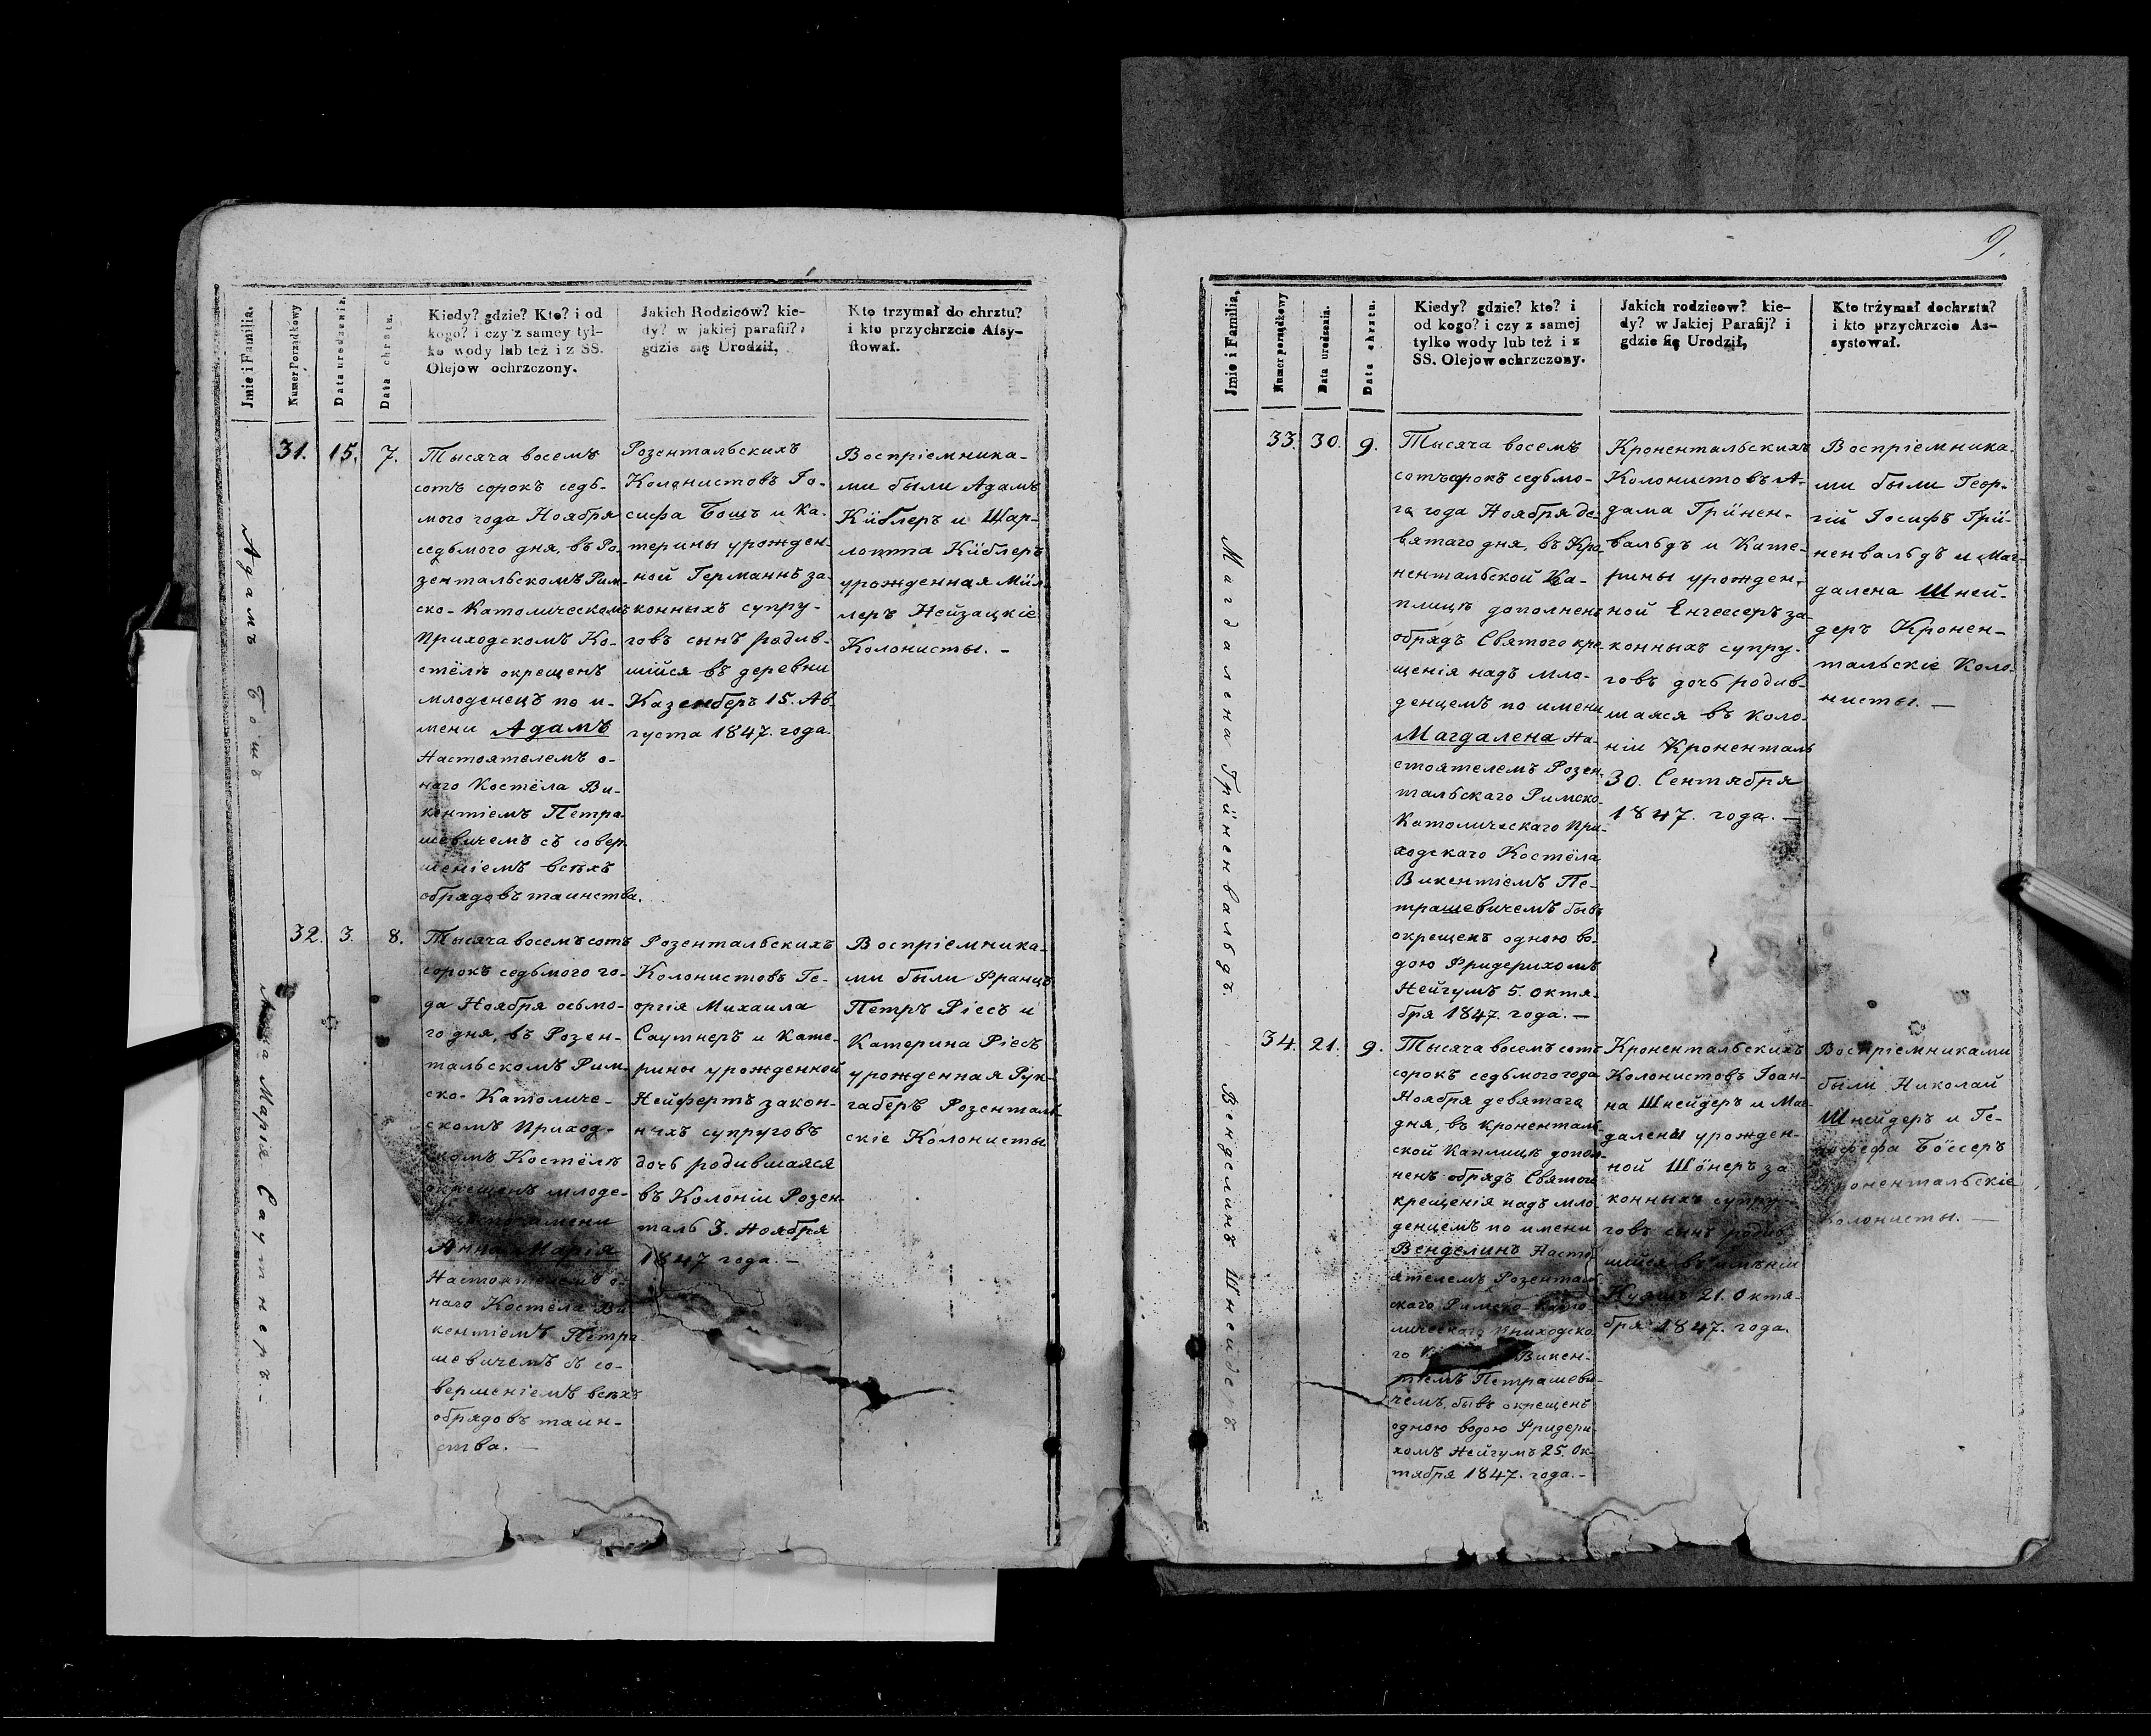 Jmie i Familia.
Numer Porządkowy
Data urodzenia.
Data chrztu.
Kiedy? gdzie? Kto? i od
kogo? i czy z samey tyl-
ko wody lub też i z SS.
Olejow ochrzczony.
Jakich Rodziców? kie-
dy? w jakiej parafii? i
gdzie się Urodził,
Kto trzymał do chrztu?
i kto przychrzcie Assy-
stował.
Адамъ Бошъ
31.
15.
7.
Тысяча восемъ
сотъ сорокъ седь-
мого года Ноября
седьмого дня, въ Ро-
зентальскомъ Рим-
ско-Католическомъ
Приходскомъ Ко-
стёлѣ окрещенъ
младенецъ по и-
мени Адамъ
Настоятелемъ о-
наго Костёла Ви-
кентіемъ Петра-
шевичемъ съ совер-
шеніемъ всѣхъ
обрядовъ таинства.
Розентальскихъ
Колонистовъ Іо-
сифа Бошъ и Ка-
терины урожден-
ной Германнъ за-
конныхъ супру-
говъ сынъ родив-
шійся въ деревни
Казенберъ 15. Ав-
густа 1847. года.
Воспріемника-
ми были Адамъ
Киблеръ и Шар-
лотта Киблеръ
урожденная Мил-
леръ Нейзацкіе
Колонисты. -
Анна Марія Саутнеръ. -
32.
3.
8.
Тысяча восемъ сотъ
сорокъ седьмого го-
да Ноября осьмо-
го дня, въ Розен-
тальскомъ Рим-
ско-Католиче-
скомъ Приход-
скомъ Костёлѣ
окрещенъ младе-
имени
Анна Марія
Настоятелемъ о-
наго Костёла Ви-
кентіемъ Петра-
шевичемъ съ со-
вершеніемъ всѣхъ
обрядовъ таин-
ства. -
Розентальскихъ
Колонистовъ Ге-
оргія Михаила
Саутнеръ и Кате-
рины урожденной
Нейфертъ закон-
ныхъ супруговъ
дочь родившаяся
въ Колоніи Розен-
таль 3. Ноября
1847 года. -
Воспріемника-
ми были Францъ
Петръ Ріесъ и
Катерина Ріесъ
урожденная Рук-
габеръ Розенталь-
скіе Колонисты
9.
Jmie i Familia,
Numer porządkowy
Data urodzenia.
Data chrztu.
Kiedy? gdzie? kto? i
od kogo? i czy z samej
tylko wody lub też i z
SS. Olejow ochrzczony.
Jakich rodzicow? kie-
dy? w Jakiej Parafij? i
gdzie się Urodził,
Kto trżymał dochrztu?
i kto przychrzcie As-
systował.
Магдалена Гриненвальдъ.
33.
30.
9.
Тысяча восемъ
сотъ сорокъ седьмо-
го года Ноября де-
вятаго дня, въ Кро-
нентальской Ка-
плицѣ дополненъ
обрядъ Святого кре-
щенія надъ мла-
денцемъ по имени
Магдалена На-
стоятелемъ Розен-
тальскаго Римско-
Католическаго При-
ходскаго Костёла
Викентіемъ Пе-
трашевичемъ бывъ
окрещенъ одною во-
дою Фридерихомъ
Нейгумъ 5. Октя-
бря 1847. года. -
Кронентальскихъ
Колонистовъ А-
дама Гринен-
вальдъ и Кате-
рины урожден-
ной Енгессеръ за-
конныхъ супру-
говъ дочь родив-
шаяся въ Коло-
ніи Кроненталь
30. Сентября
1847. года. -
Воспріемника-
ми были Геор-
гій Іосифъ Гри-
ненвальдъ и Маг-
далена Шней-
деръ Кронен-
тальскіе Коло-
нисты. -
Венделинъ Шнейдеръ.
34.
21.
9.
Тысяча восемъ сотъ
сорокъ седьмого года
Ноября девятаго
дня, въ Кроненталь-
ской Каплицѣ допол-
ненъ обрядъ Святого
крещенія надъ мла-
денцемъ по имени
Венделинъ Насто-
ятелемъ Розенталь-
скаго Римско-Като-
лическаго Приходска-
го Викен-
тіемъ Петрашеви-
чемъ, бывъ окрещенъ
одною водою Фридери-
хомъ Нейгумъ 25. Ок-
тября 1847. года. -
Кронентальскихъ
Колонистовъ Іоан-
на Шнейдеръ и Маг-
далены урожден-
ной Шонеръ за-
конныхъ супру-
говъ сынъ родив-
шійся въ имѣніи
21. Октя-
бря 1847. года.
Воспріемниками
были Николай
Шнейдеръ и Ге-
Бёссеръ
Кронентальскіе
Колонисты. -